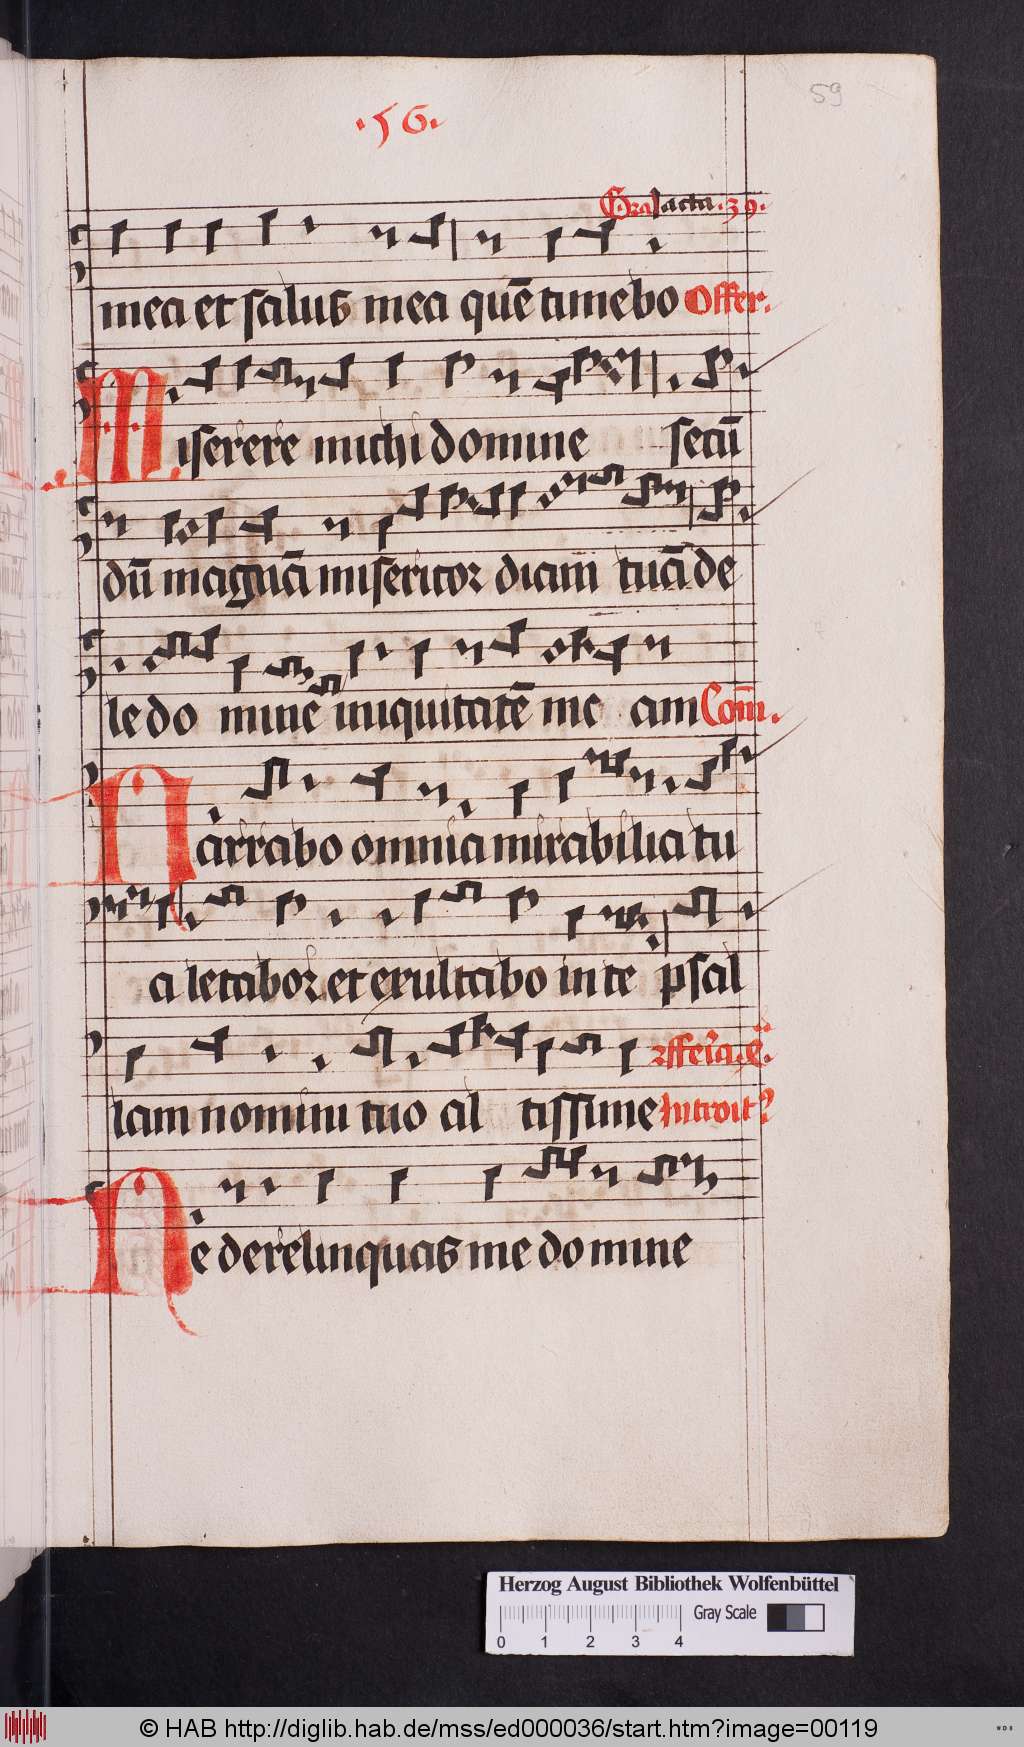 59
·56·
Gra Iacta · 39 ·
mea et salus mea quē timebo Offer.
Miserere michi domine secū
dū magnā misericor diam tuā de
le do mine iniquitatē me am Com̄.
Narrabo omnia mirabilia tu
a letabor et exultabo in te psal
lam nomini tuo al tissime
Introit
Ne derelinquas me domine
Herzog August Bibliothek Wolfenbüttel
Gray Scale
0 1 2 3 4
© HAB http://diglib.hab.de/mss/ed000036/start.htm?image=00119